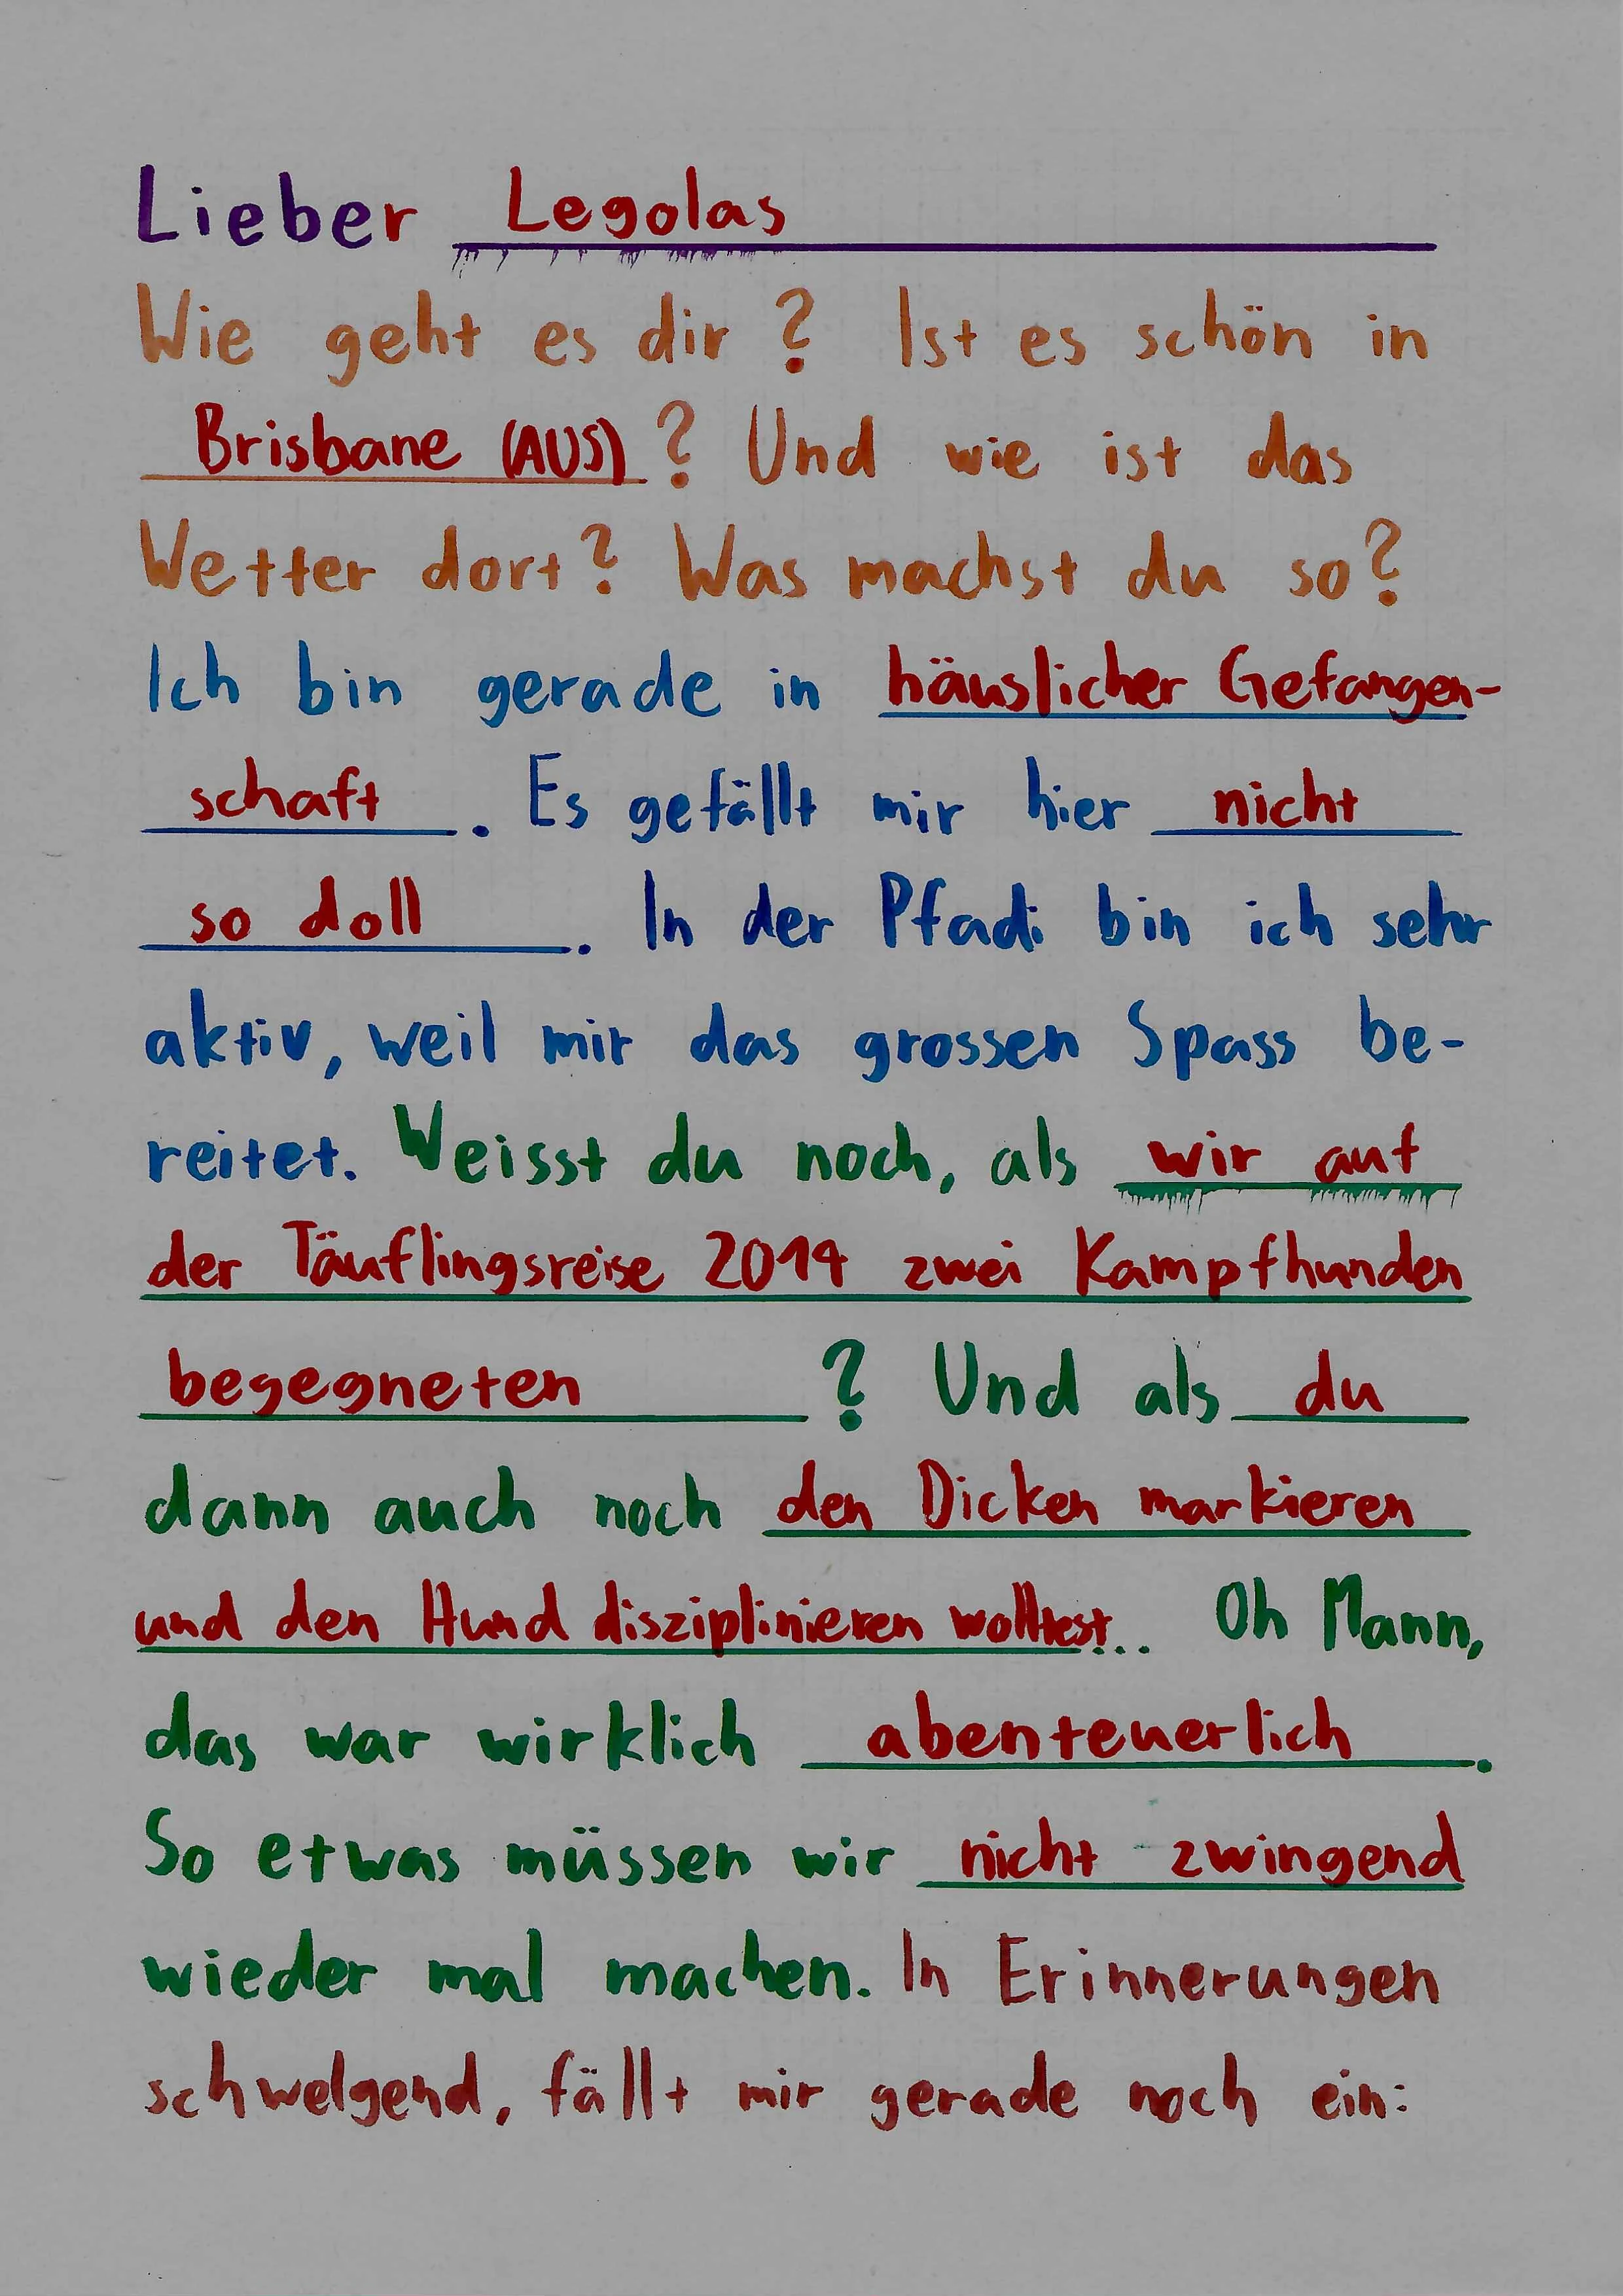 Lieber Legolas
Wie geht es dir? Ist es schön in
Brisbane (AUS)? Und wie ist das
Wetter dort? Was machst du so?
Ich bin gerade in häuslicher Gefangen-
schaft. Es gefällt mir hier nicht
so doll. In der Pfadi bin ich sehr
aktiv, weil mir das grossen Spass be-
reitet. Weisst du noch, als wir auf
der Täuflingsreise 2014 zwei Kampfhunden
begegneten? Und als du
dann auch noch den Dicken markieren
und den Hund disziplinieren wolltest... Oh Mann,
das war wirklich abenteuerlich.
So etwas müssen wir nicht zwingend
wieder mal machen. In Erinnerungen
schwelgend, fällt mir gerade noch ein: